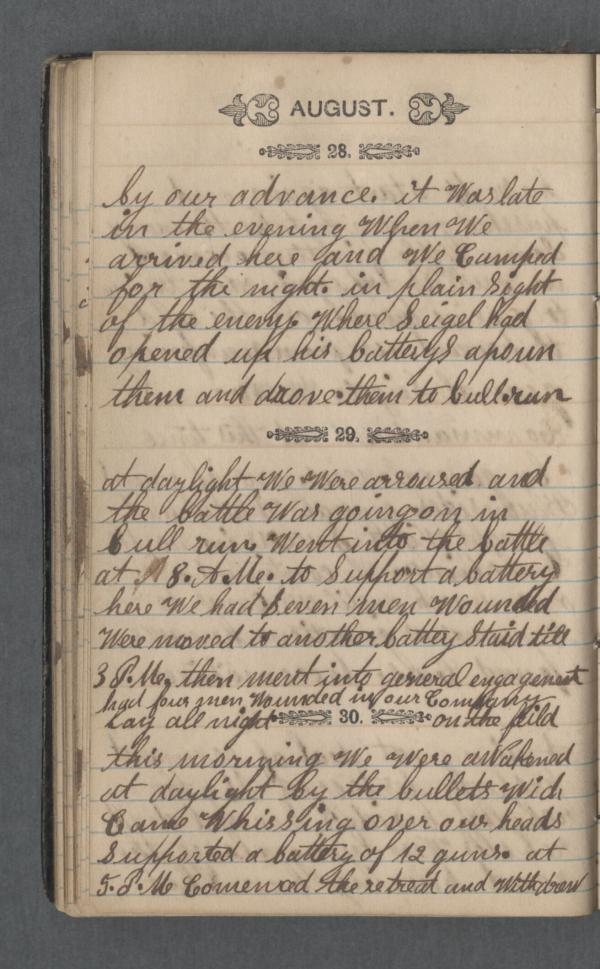 AUGUST.
28.
by our advance. it Was late
in the evening When We
arrived here and We Camped
for the night. in plain Sight
of the enemy. Where Seigel had
opened up his batterys apoun
them and drove them to bull run
29.
at daylight We Were arroused and
the battle Was going on in
bull run. Went into the battle
at 8. A.M. to Support a battery
here We had Seven men Wounded
Were moved to another battey Staid till
3 P.M. then went into general engagement
had four men Wounded in our Company
Lay all night on the feild
30.
this morning We Were aWakened
at daylight by the bullets Wich
Came Whissing over our heads
Supported a battery of 12 guns. at
5. P.M Comenced the retreat and Withdrew